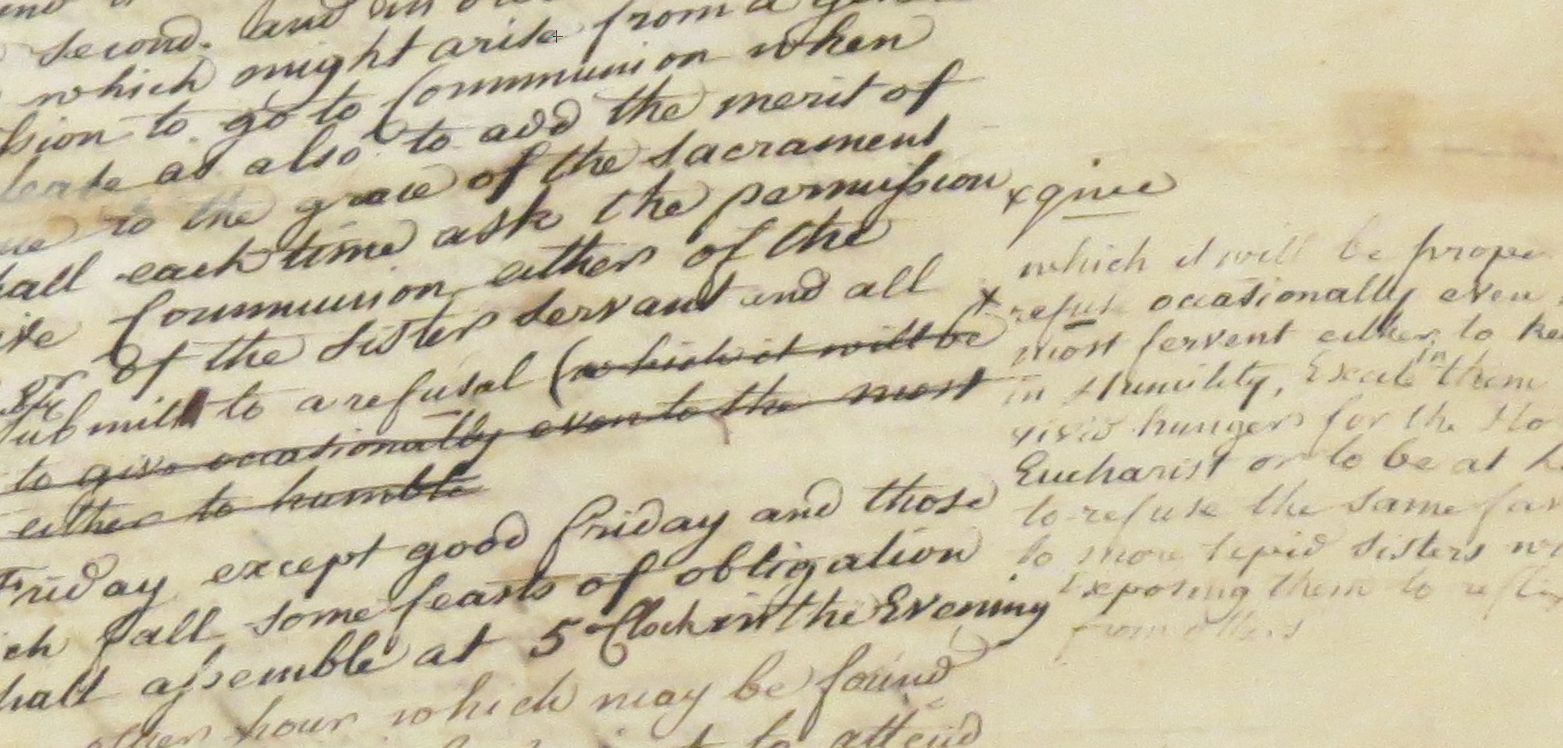 second. and in
which might arise from a
sion to go to Communion when
as also to add the merit of
to the grace of the sacrament
all each time ask the permission
Communion either of the
or of the sister servant and all
submit to a refusal (which it will be
to give occasionally even to the most
either to humble
Friday except good Friday and those
ch fall some feasts of obligation
hall assemble at 5 oClock in the Evening
other hour which may be found
to attend
x give
which it will be proper
x refuse occasionally even
most fervent either to
in Humility, Excite in them
vivid hunger for the Ho
Eucharist or to be at
to refuse the same fa
to more tepid sisters
Exposing them to
from others